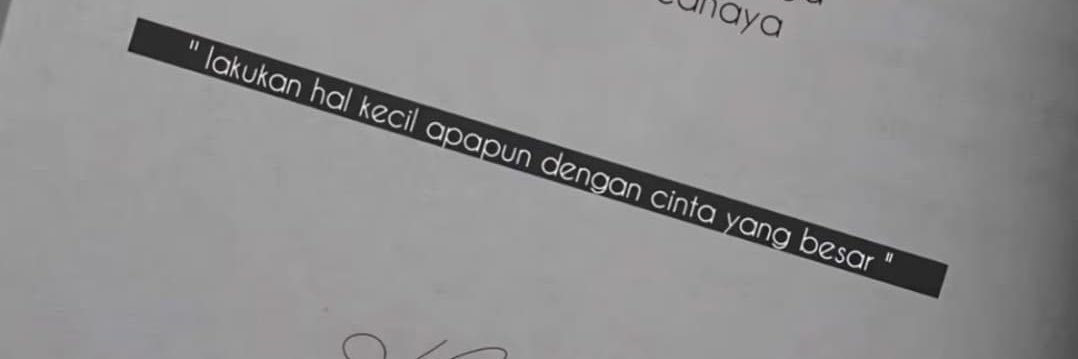 " lakukan hal kecil apapun dengan cinta yang besar "